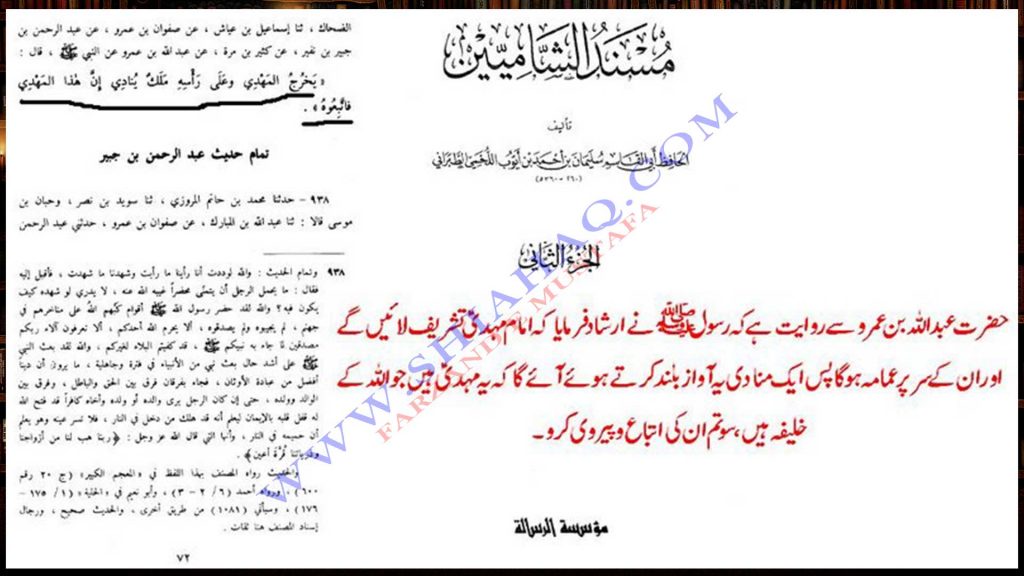 الضحاك ، ثنا إسماعيل بن عياش ، عن صفوان بن عمرو ، عن عبد الرحمن بن
جبير بن نفير ، عن كثير بن مرة ، عن عبد الله بن عمرو عن النبي ﷺ ، قال :
« يَخْرُجُ المَهْدِي وعَلَى رَأْسِهِ مَلَكٌ يُنَادِي إِنَّ هٰذَا المَهْدِي
فاتَّبِعُوهُ » .
تمام حديث عبد الرحمن بن جبير
٩٣٨ - حدثنا محمد بن حاتم المروزي ، ثنا سويد بن نصر ، وحبان بن
موسى قالا : ثنا عبد الله بن المبارك ، عن صفوان بن عمرو ، حدثني عبد الرحمن
٩٣٨ وتمام الحديث : والله لوددت أنا رأينا ما رأيت وشهدنا ما شهدت ، فأقبل إليه
فقال : ما يحمل الرجل أن يتمنى محضراً غيبه الله عنه ، لا يدري لو شهده كيف
يكون فيه؟ والله لقد حضر رسول الله ﷺ أقوام كبّهم الله على مناخرهم في
جهنم ، لم يجيبوه ولم يصدقوه ، ألا يحرم الله أحدكم ، ألا تعرفون آلاء ربكم
مصدقين لما جاء به نبيكم ﷺ ، قد كفيتم البلاء لغيركم ، والله لقد بعث النبي
ﷺ على أشد حال بعث نبي من الأنبياء في فترة وجاهلية ، ما يرون أن ديناً
أفضل من عبادة الأوثان ، فجاء بفرقان فرق بين الحق والباطل ، وفرق بين
الوالد وولده ، حتى إن كان الرجل يرى والده أو ولده وأخاه كافراً قد فتح الله
له قفل قلبه بالإيمان ليعلم أنه قد هلك من دخل في النار ، فلا تسر عينه وهو يعلم
أن حميمه في النار ، وأنها التي قال الله عز وجل : ﴿ ربنا هب لنا من أزواجنا
وذرياتنا قُرَّةَ أعين ﴾ .
والحديث رواه المصنف بهذا اللفظ في «المعجم الكبير» (ج ٢٠ رقم
٦٠٠) ، ورواه أحمد (٦/ ٢ - ٣) ، وأبو نعيم في «الحلية» (١ /١٧٥ -
١٧٦) ، وسيأتي (١٠٨١) من طريق أخرى ، والحديث صحيح ، ورجال
إسناد المصنف هنا ثقات .
٧٢
مُسْنَدُ الشَّامِيِّين
تأليف
الحافظ أبي القاسم سليمان بن أحمد بن أيوب اللخمي الطبراني
(٢٦٠ - ٣٦٠هـ)
الجزءُ الثَّاني
حضرت عبداللہ بن عمرو سے روایت ہے کہ رسول ﷺ نے ارشاد فرمایا کہ امام مہدیؑ تشریف لائیں گے
اور ان کے سر پر عمامہ ہوگا پس ایک منادی یہ آواز بلند کرتے ہوئے آئے گا کہ یہ مہدیؑ ہیں جو اللہ کے
خلیفہ ہیں، سو تم ان کی اتباع و پیروی کرو۔
مؤسسة الرسالة
WWW.SHIAHAQ.COM
FARZAND E MUSTAFA